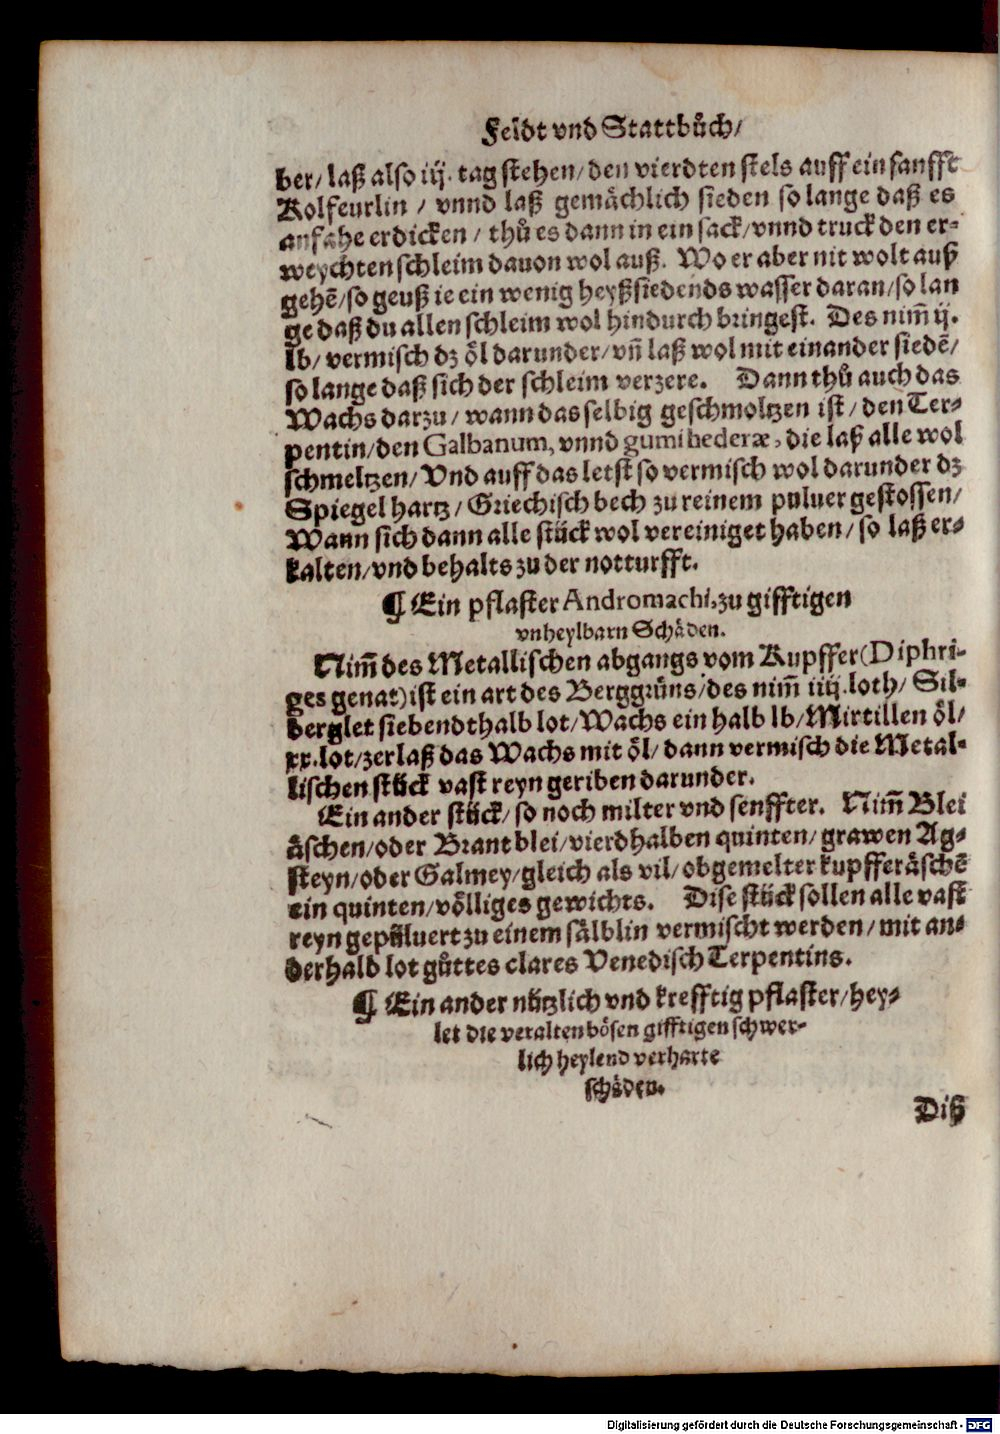 Feldt vnd Stattbůch/
ber/ laß also iij. tag stehen/ den vierdten stels auff ein sanfft
Kolfeurlin / vnnd laß gemächlich sieden so lange daß es
anfahe erdicken / thů es dann in ein sack/ vnnd truck den er-
weychten schleim dauon wol auß. Wo er aber nit wolt auß
gehē/ so geuß ie ein wenig heyßsiedends wasser daran/ so lan
ge daß du allen schleim wol hindurch bringest. Des nim̄ ij.
lb/ vermisch dz öl darunder/ vn̄ laß wol mit einander siedē/
so lange daß sich der schleim verzere. Dann thů auch das
Wachs darzu/ wann das selbig geschmoltzen ist/ den Ter-
pentin/ den Galbanum, vnnd gumi hederæ, die laß alle wol
schmeltzen/ Vnd auff das letst so vermisch wol darunder dz
Spiegel hartz/ Griechisch bech zu reinem puluer gestossen/
Wann sich dann alle stück wol vereiniget haben/ so laß er-
kalten/ vnd behalts zu der notturfft.
¶ Ein pflaster Andromachi, zu gifftigen
vnheylbarn Schäden.
Nim̄ des Metallischen abgangs vom Kupffer (Diphri-
ges genat) ist ein art des Berggrüns/ des nim̄ iiij. loth/ Sil-
berglet siebendthalb lot/ Wachs ein halb lb/ Mirtillen öl/
xx. lot/ zerlaß das Wachs mit öl/ dann vermisch die Metal-
lischen stück vast reyn geriben darunder.
Ein ander stück/ so noch milter vnd senffter. Nim̄ Blei
äschen/ oder Brant blei/ vierdhalben quinten/ grawen Ag-
steyn/ oder Galmey/ gleich als vil/ obgemelter kupfferäschē
ein quinten/ völliges gewichts. Dise stück sollen alle vast
reyn gepüluert zu einem sälblin vermischt werden/ mit an-
derhalb lot gůttes clares Venedisch Terpentins.
¶ Ein ander nützlich vnd krefftig pflaster/ hey-
let die veralten bösen gifftigen schwer-
lich heylend verharte
schäden.
Diß
Digitalisierung gefördert durch die Deutsche Forschungsgemeinschaft - DFG